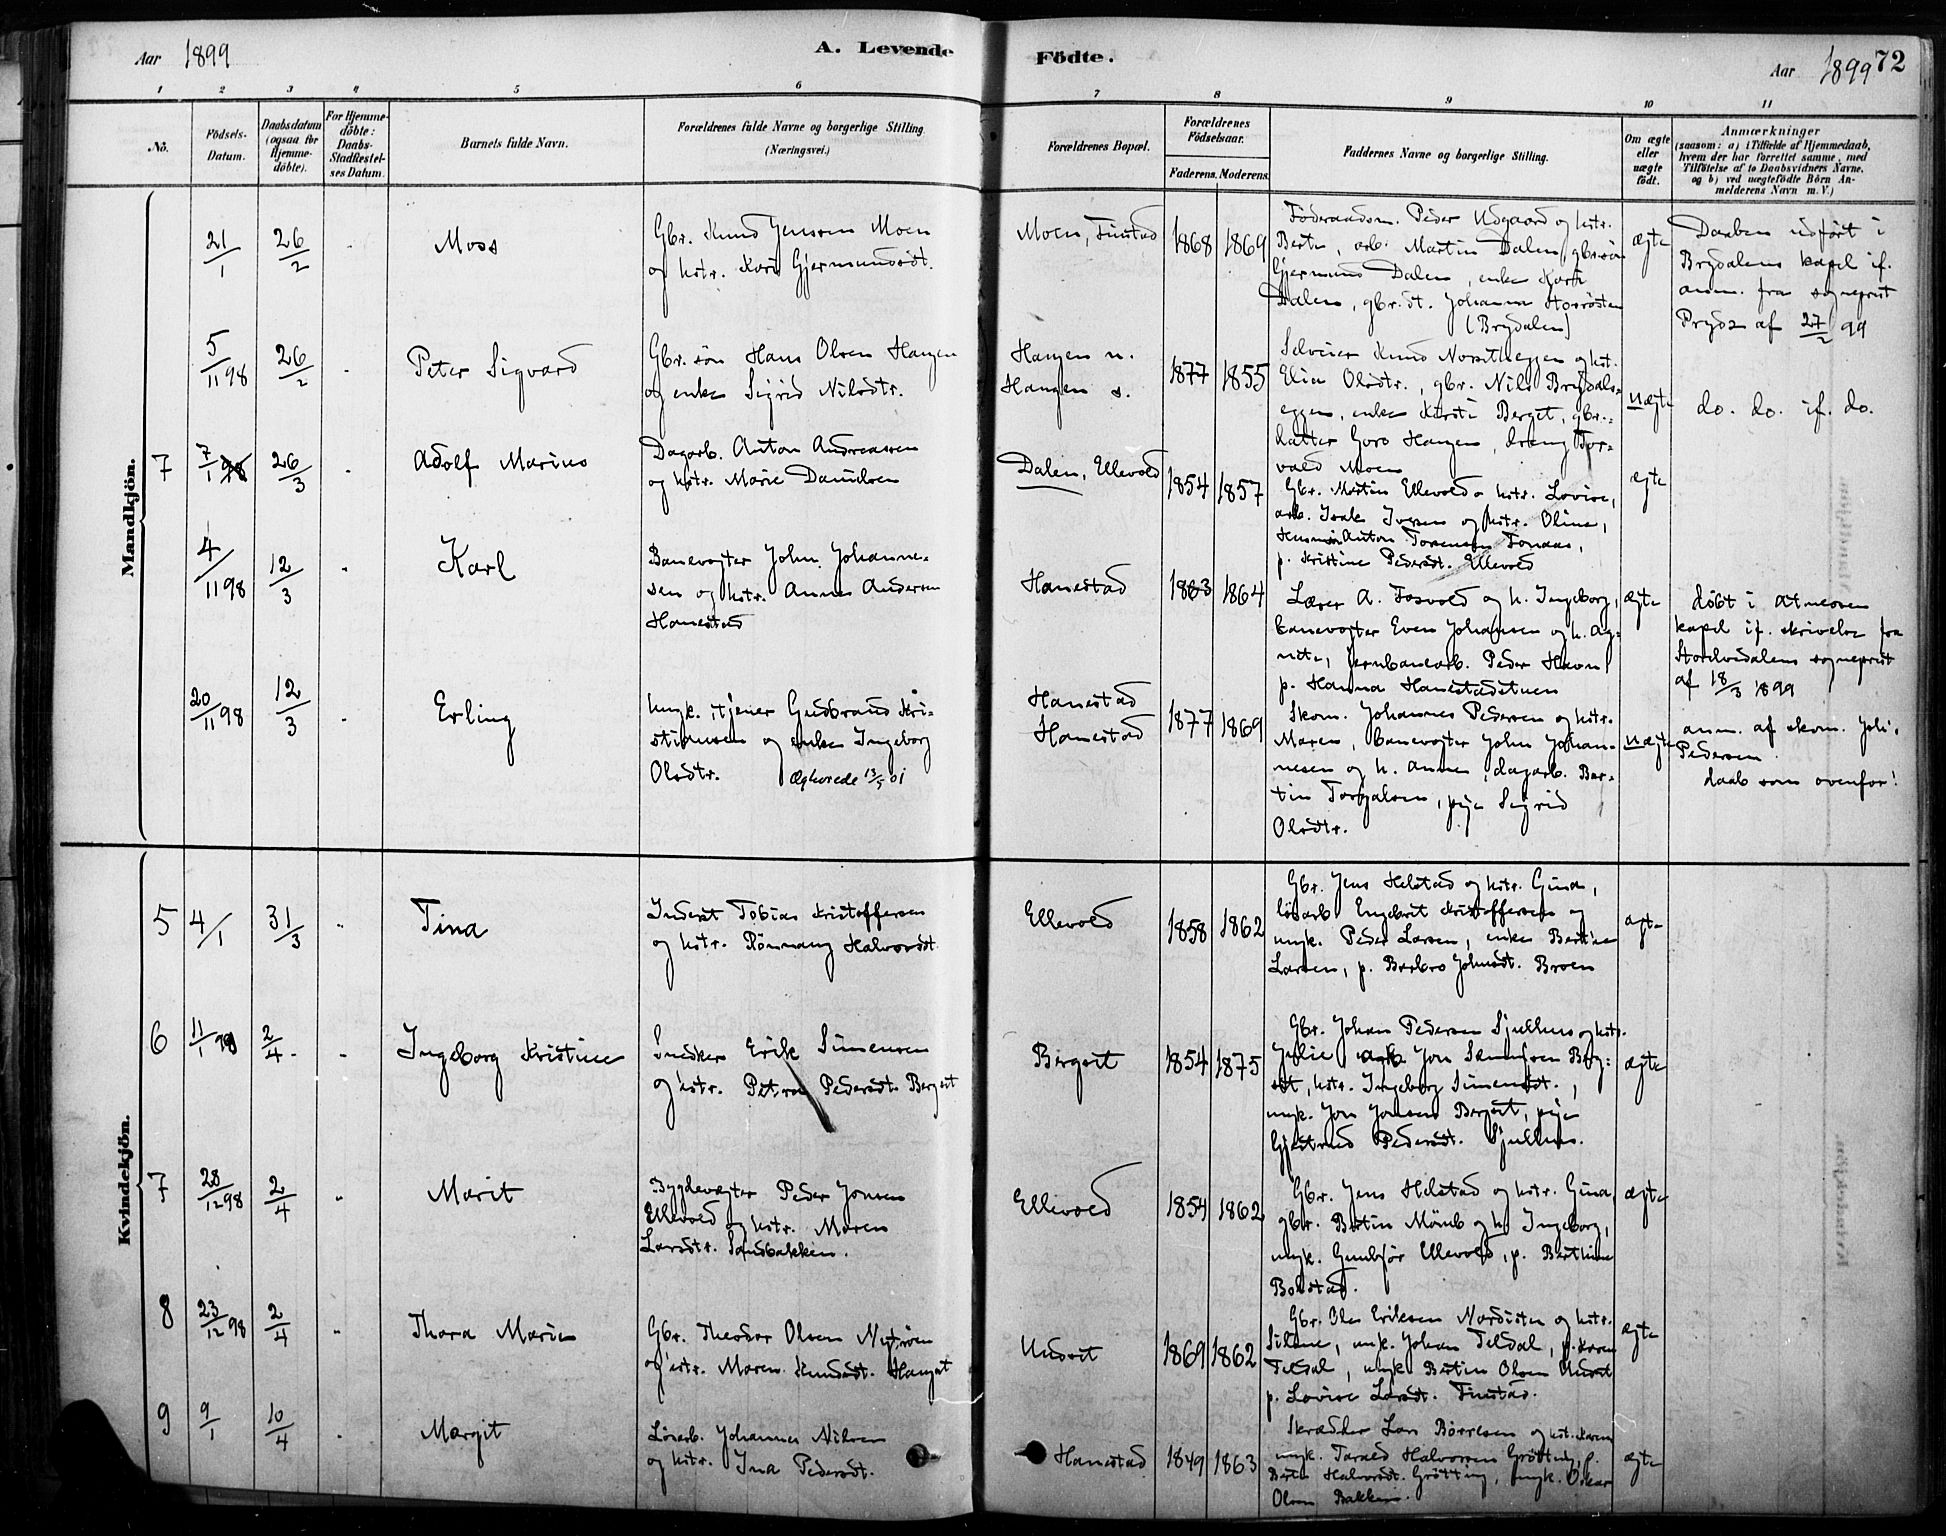 Aar 1899
A. Levende
Födte.
Aar 1899
72
1 2 3 4 5 6 7 8 9 10 11
No.
Födsels-
Datum.
Daabsdatum
(ogsaa for
Hjemme-
döbte).
For Hjemme-
döbte:
Daabs-
Stadfæstel-
ses Datum.
Barnets fulde Navn.
Forældrenes fulde Navne og borgerlige Stilling
(Næringsvei.)
Forældrenes Bopæl.
Forældrenes
Födselsaar.
Faderens. Moderens.
Faddernes Navne og borgerlige Stilling.
Om ægte
eller
uægte
födt.
Anmærkninger
(saasom: a) i Tilfælde af Hjemmedaab,
hvem der har forrettet samme, med
Tilföielse af to Daabsvidners Navne,
og b) ved uægtefödte Börn An-
melderens Navn m. V.)
Mandkjön.
21/1 26/2 Moss
Gbr. Knud Jensen Moen
og hstr. Kari Gjermundsdt.
Moen, Finstad 1868 1869
Föderaadsm. Peder Udgaard og hstr.
Berte, arb. Martin Dalen, gbr.sön
Gjermund Dalen, enke Kari
Dalen, gbr.dt. Johanna
(Brydalen)
ægte
Daaben udfört i
Brydalens kapel if.
anm. fra sogneprest
Pryds af 27/2 99
5/11 98 26/2 Peter Sigvard
Gbr. sön Hans Olsen Hangen
og enke Sigrid Nilsdtr.
Hangen n.
Hangen s.
1877 1855
Selveier Knud og hst.
Olsdtr., gbr. Nils Brydals-
eggen, enke Kirsti Berget, gbr.-
datter Goro Hangen, dreng Tor-
vald Moen
uægte
do. do. if. do.
7 7/1 26/3 Adolf Marius
Dagarb. Anton Andreassen
og hstr. Marie Danielsen
Dalen, Ellevold 1854 1857
Gbr. Martin Ellevold o hstr. Lovise,
arb. Isak Iversen og hstr. Oline,
Anton Torensen
p. Kristine Pedersdt. Ellevold
ægte
4/11 98 12/3 Karl
Banevogter John Johanne-
sen og hstr. Anne Andersen
Hanestad
Hanestad 1863 1864
Lærer A. Fosvold og h. Ingeborg,
banevogter Even Johansen og h. Ag-
nete, jernbanearb. Peder Havn
p. Hanna Hanestadstuen
ægte
döbt i Atneosen
kapel if. skrivelse fra
Storelvedalens sogneprest
af 18/3 1899
20/11 98 12/3 Erling
Ungk. tjener Gudbrand Kri-
stiansen og enke Ingeborg
Olsdtr. Ægteviede 13/5 01
Hanestad
Hanestad
1877 1869
Skom. Johannes Pedersen og hstr.
Maren, banevogter John Johan-
nesen og h. Anne, dagarb. Ber-
tin Torgalsen, pige Sigrid
Olsdtr.
uægte
anm. af skom. Joh.
Pedersen
daab som ovenfor!
Kvindekjön.
5 4/1 31/3 Tina
Inderst Tobias Kristoffersen
og hstr. Rönnaug Halvorsdt.
Ellevold 1858 1862
Gbr. Jens Helstad og hstr. Gina,
lösarb Engebret Kristoffersen og
ungk. Peder Larsen, enke Bertine
Larsen, p. Barbro Johnsdt. Broen
ægte
6 11/1 98 2/4 Ingeborg Kristine
Snedker Erik Simensen
og hstr. Petra Pedersdt. Bergset
Bergset 1854 1875
Gbr. Johan Pedersen Sjullhus og hstr.
Julie Jon Berg-
set, hstr. Ingeborg Simensdt.,
ungk. Jon Jonsen Bergset, pige
Gjertrud Pedersdt. Sjullhus.
ægte
7 28/12 98 2/4 Marit
Bygdevægter Peder Jonsen
Ellevold og hstr. Maren
Larsdtr. Sandbakken.
Ellevold 1854 1862
Gbr. Jens Helstad og hstr. Gina,
gbr. Bertin Mömb og h. Ingeborg,
ungk. Gunbjör Ellevold, p. Berthine
Bolstad.
ægte
8 23/12 98 2/4 Thora Marie
Gbr. Theodor Olsen Nytröen
og hstr. Maren Knudsdt. Hanget
Undset 1869 1862
Gbr. Ole Eriksen Nordistu og hstr.
Siline, unk. Johan Feldal, p. Karen
Feldal, ungk Bertin Olsen Undset
p. Lovise Larsdt. Finstad.
ægte
9 9/1 10/4 Margit
Lösarb. Johannes Nilsen
og hstr. Ina Pedersdt.
Hanestad 1849 1863
Skrædder Lars Börresen og hst. Karen
ungk. Tarald Halvorsen Grötting, p.
Berte Halvorsdt. Grötting, ungk. Oskar
Olsen Bakken.
ægte